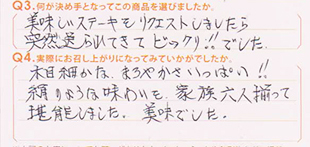 Q3.何が決め手となってこの商品を選びましたか。
美味しいステーキをリクエストしましたら
突然送られてきてビックリ!!でした。
Q4.実際にお召し上がりになってみていかがでしたか。
木目細かな、まろやかさいっぱい!!
絹のような味わいを、家族六人揃って
堪能しました。美味でした。